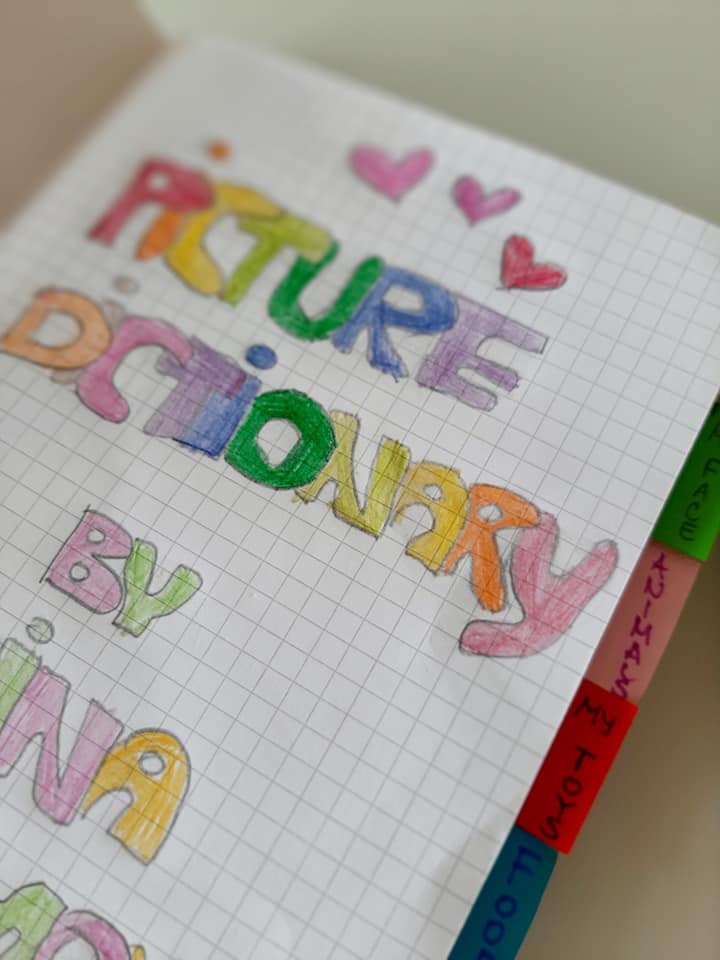 PiCTURE
DiCTiONARY
BY
iNA
FACE
ANIMAS
MY TOYS
FOOD